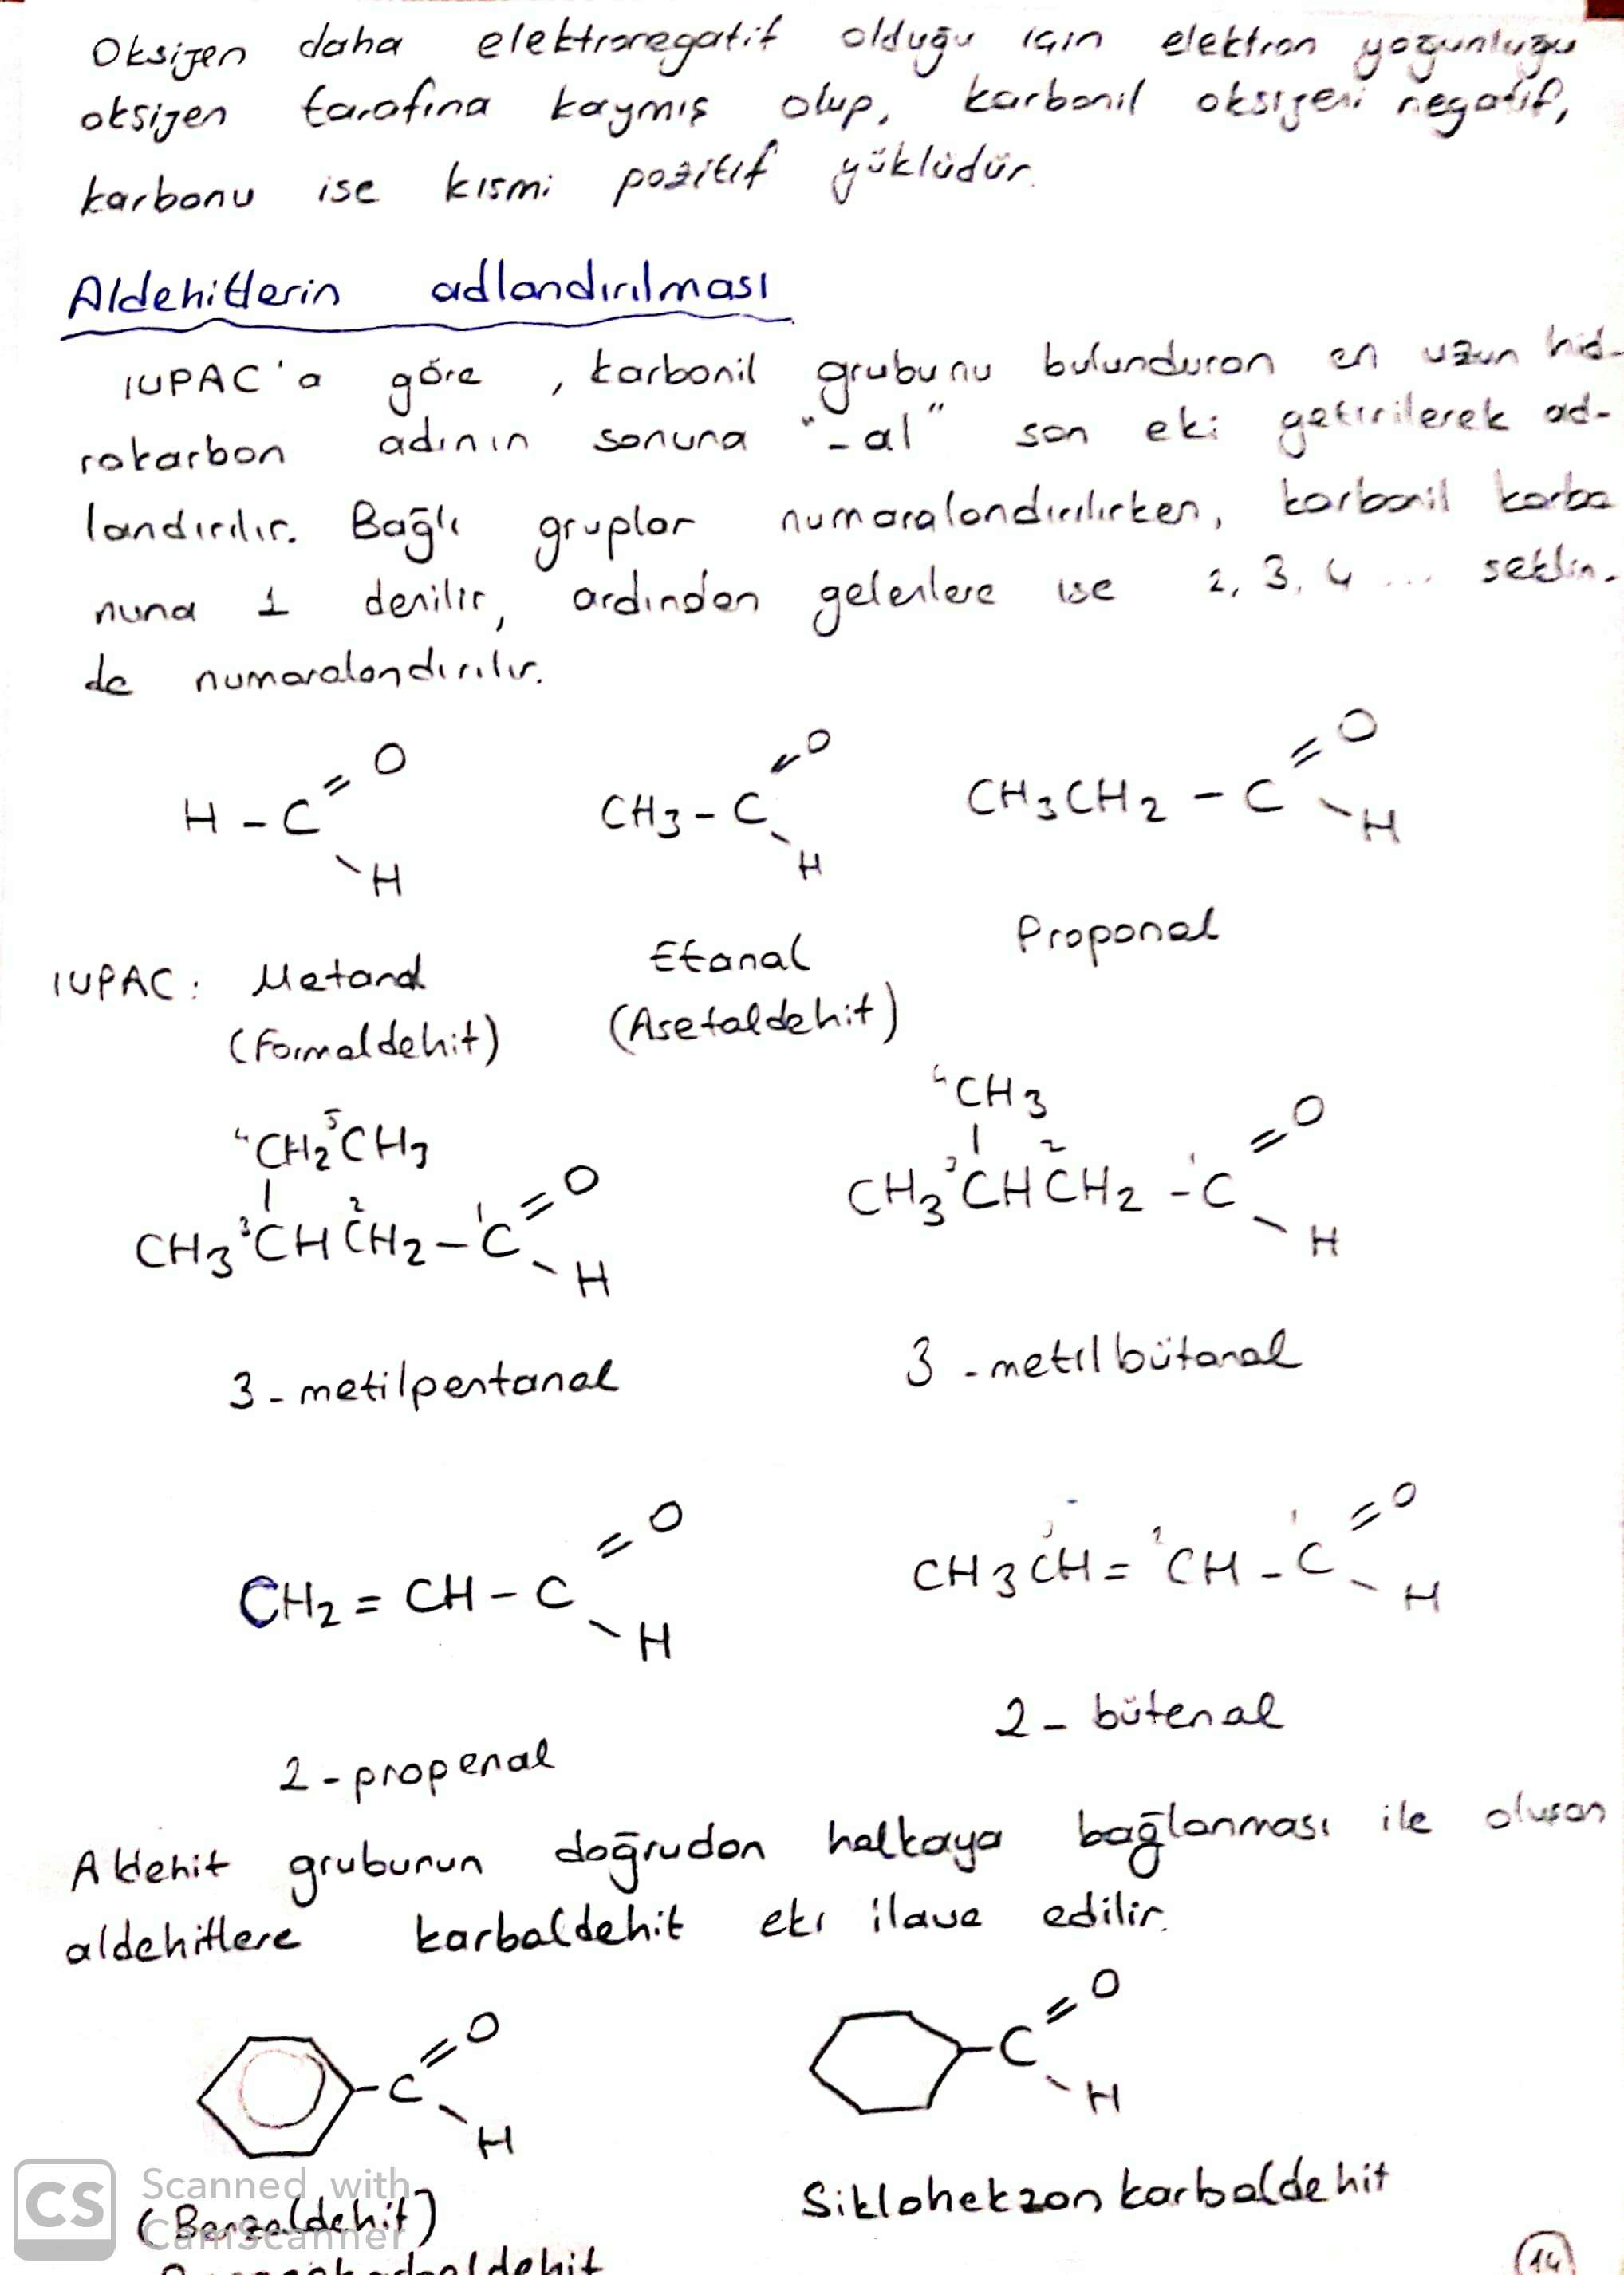 Oksijen daha elektronegatif olduğu için elektron yoğunluğu
oksijen tarafına kaymış olup, karbonil oksijeni negatif,
karbonu ise kısmi pozitif yüklüdür.
Aldehitlerin adlandırılması
IUPAC'a göre, karbonil grubunu bulunduran en uzun hid-
rokarbon adının sonuna "-al" son eki getirilerek ad-
landırılır. Bağlı gruplar numaralandırılırken, karbonil karbo
nuna 1 denilir, ardından gelenlere ise 2, 3, 4 ... seklin-
de numaralandırılır.
H - C = O - H
CH3 - C = O - H
CH3CH2 - C = O - H
IUPAC: Metanal
Etanal
Propanal
(Formaldehit)
(Asetaldehit)
4CH2 5CH3
CH3 3CH 2CH2 - 1C = O - H
4CH3
CH3 3CH 2CH2 - 1C = O - H
3-metilpentanal
3-metilbütanal
CH2 = CH - C = O - H
CH3 3CH = 2CH - 1C = O - H
2-propenal
2-bütenal
Aldehit grubunun doğrudan halkaya bağlanması ile olusan
aldehitlere karbaldehit eki ilave edilir.
C = O - H
C = O - H
(Benzaldehit)
Siklohekzan karbaldehit
CS Scanned with
CamScanner
14